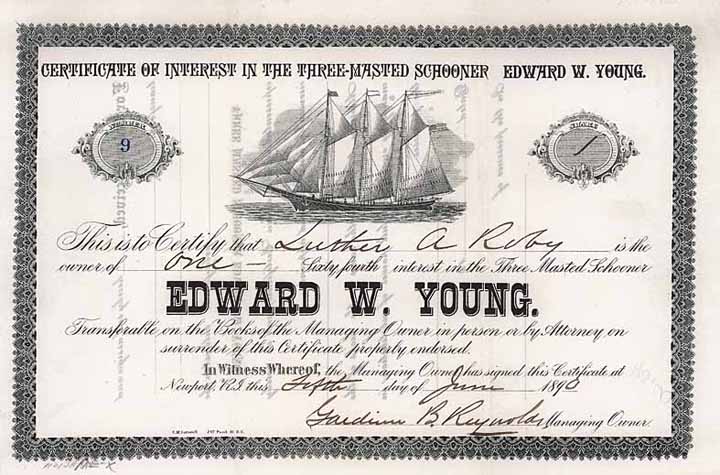 CERTIFICATE OF INTEREST IN THE THREE-MASTED SCHOONER EDWARD W. YOUNG.
NUMBER
9
SHARE
1
This is to Certify that Luther A Roby is the
owner of One Sixty fourth interest in the Three Masted Schooner
EDWARD W. YOUNG.
Transferable on the Books of the Managing Owner in person or by Attorney, on
surrender of this Certificate properly endorsed.
In Witness Whereof, the Managing Owner has signed this Certificate at
Newport, R.I. this Fifth day of June 1890
B. Reynolds Managing Owner.